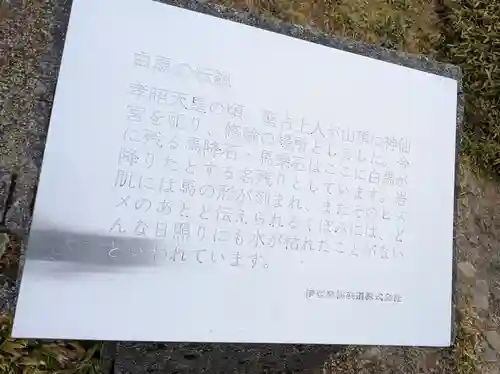 白馬の伝説
孝昭天皇の頃、聖占上人が山頂に神仙
宮を祀り、修験の場所としました。今
に残る馬降石・馬乗石はここに白馬が
降りたとする名残りとしています。岩
肌には馬の形が刻まれ、またそのヒズ
メのあとと伝えられるくぼみには、ど
んな日照りにも水が枯れたことがない
といわれています。